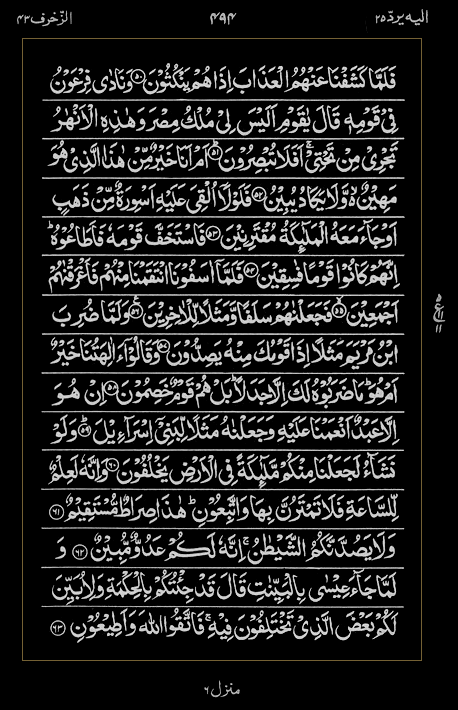 الیه یردّ ۲۵ ۴۹۴ الزّخرف ۴۳
فَلَمَّا كَشَفْنَا عَنْهُمُ الْعَذَابَ اِذَا هُمْ يَنْكُثُوْنَ ۝۵۰ وَنَادٰى فِرْعَوْنُ
فِىْ قَوْمِهٖ قَالَ يٰقَوْمِ اَلَيْسَ لِىْ مُلْكُ مِصْرَ وَهٰذِهِ الْاَنْهٰرُ
تَجْرِىْ مِنْ تَحْتِىْ ۚ اَفَلَا تُبْصِرُوْنَ ۝۵۱ اَمْ اَنَا خَيْرٌ مِّنْ هٰذَا الَّذِىْ هُوَ
مَهِيْنٌ ۙ وَّلَا يَكَادُ يُبِيْنُ ۝۵۲ فَلَوْلَاۤ اُلْقِىَ عَلَيْهِ اَسْوِرَةٌ مِّنْ ذَهَبٍ
اَوْ جَآءَ مَعَهُ الْمَلٰٓئِكَةُ مُقْتَرِنِيْنَ ۝۵۳ فَاسْتَخَفَّ قَوْمَهٗ فَاَطَاعُوْهُ ؕ
اِنَّهُمْ كَانُوْا قَوْمًا فٰسِقِيْنَ ۝۵۴ فَلَمَّاۤ اٰسَفُوْنَا انْتَقَمْنَا مِنْهُمْ فَاَغْرَقْنٰهُمْ
اَجْمَعِيْنَ ۝۵۵ فَجَعَلْنٰهُمْ سَلَفًا وَّمَثَلًا لِّلْاٰخِرِيْنَ ۝۵۶ وَلَمَّا ضُرِبَ
ابْنُ مَرْيَمَ مَثَلًا اِذَا قَوْمُكَ مِنْهُ يَصِدُّوْنَ ۝۵۷ وَقَالُوْۤا ءَاٰلِهَتُنَا خَيْرٌ
اَمْ هُوَ ؕ مَا ضَرَبُوْهُ لَكَ اِلَّا جَدَلًا ؕ بَلْ هُمْ قَوْمٌ خَصِمُوْنَ ۝۵۸ اِنْ هُوَ
اِلَّا عَبْدٌ اَنْعَمْنَا عَلَيْهِ وَجَعَلْنٰهُ مَثَلًا لِّبَنِىْۤ اِسْرَآءِيْلَ ۝۵۹ وَلَوْ
نَشَآءُ لَجَعَلْنَا مِنْكُمْ مَّلٰٓئِكَةً فِى الْاَرْضِ يَخْلُفُوْنَ ۝۶۰ وَاِنَّهٗ لَعِلْمٌ
لِّلسَّاعَةِ فَلَا تَمْتَرُنَّ بِهَا وَاتَّبِعُوْنِ ؕ هٰذَا صِرَاطٌ مُّسْتَقِيْمٌ ۝۶۱
وَلَا يَصُدَّنَّكُمُ الشَّيْطٰنُ ۚ اِنَّهٗ لَكُمْ عَدُوٌّ مُّبِيْنٌ ۝۶۲ وَ
لَمَّا جَآءَ عِيْسٰى بِالْبَيِّنٰتِ قَالَ قَدْ جِئْتُكُمْ بِالْحِكْمَةِ وَلِاُبَيِّنَ
لَكُمْ بَعْضَ الَّذِىْ تَخْتَلِفُوْنَ فِيْهِ ۚ فَاتَّقُوا اللّٰهَ وَاَطِيْعُوْنِ ۝۶۳
ع ۱۱
منزل ۶